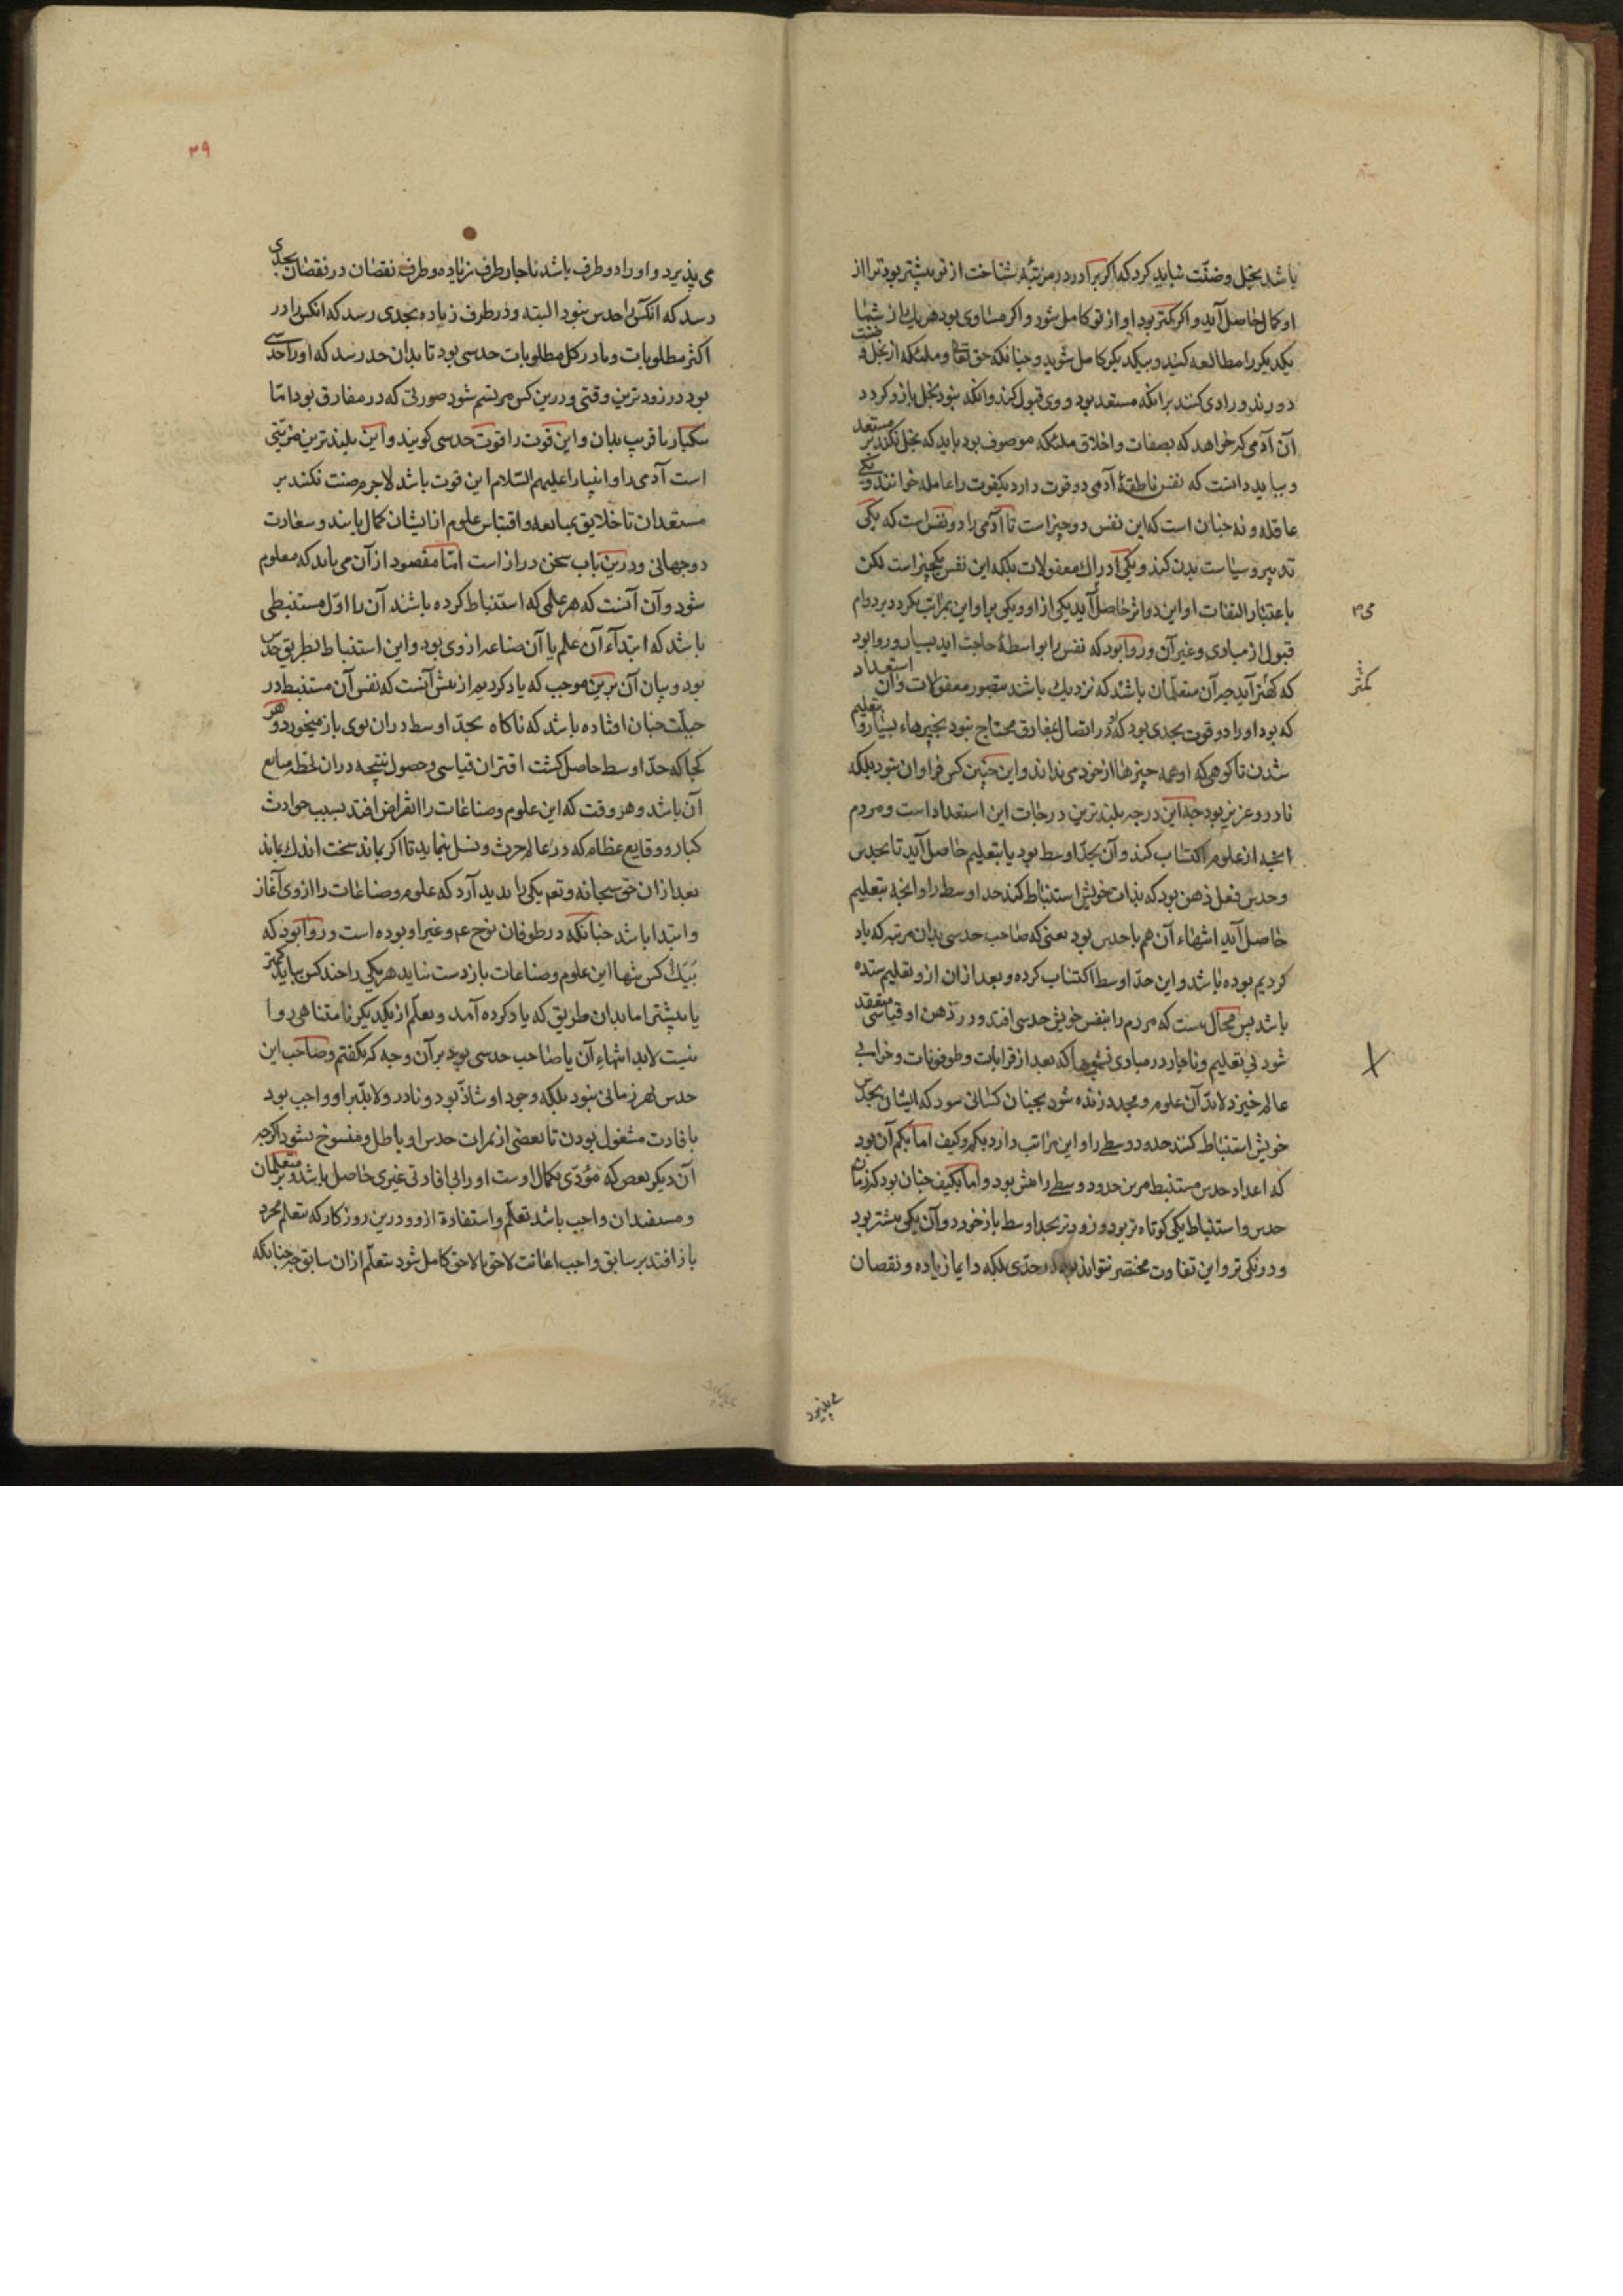 باشد بخل و ضنّت نباید کرد که اگر برادر در مرتبهٔ شناخت از تو بیشتر بود ترا از
او کمال حاصل آید و اکر کمتر بود او از تو کامل شود و اکر مساوی بود هر یک از شما
یکدیکر را مطالعه کنید و بیکدیکر کامل شوید و چنانکه حق تعالی و ملئکه از بخل و ضنت
دورند و رادی کنند بر انکه مستعد بود و وی قبول کند و انکه نبود بخل بازو کردد
آن آدمی که خواهد که بصفات و اخلاق ملئکه موصوف بود باید که بخل نکند بر مستعد
و بباید دانست که نفس ناطقهٔ آدمی دو قوت دارد یکقوت را عامله خوانند و یکی
عاقله و نه چنان است که این نفس دو چیز است تا آدمی را دو نفس است که یکی
تدبیر و سیاست بدن کند و یکی ادراک معقولات بلکه این نفس یکچیز است لکن
باعتبار التفات او این دو اثر حاصل آید یکی از او و یکی بر او این بمراتب نکردد بر دوام
می‌م
قبول از مبادی و غیر آن و روا بود که نفس را بواسطهٔ حاجت اید بسیار و روا بود
که کمتر آید چه آن متعلمان باشند که نزدیک باشند بتصور معقولات و آن استعداد
کمتر
که بود او را دو قوت بحدی بود که در اتصال بمفارق محتاج نبود بچیزهاء بسیار و بتعلیم
شدن تا کوهی که او همه چیزها از خود می‌نداند و این چنین کس فراوان نبود بلکه
نادر و عزیز بود چه این درجه بلندترین درجات این استعداد است و مردم
انچه از علوم اکتساب کند و آن بحدّ اوسط بود یا بتعلیم حاصل آید تا بحدس
و حدس فعل ذهن بود که بذات خویش استنباط کند حد اوسط را و انچه بتعلیم
حاصل آید انتهاء آن هم با حدس بود یعنی که صاحب حدسی بدان مرتبه که یاد
کردیم بوده باشد و این حدّ اوسط اکتساب کرده و بعد از ان ازو تعلیم ستده
باشد پس محال نیست که مردم را بنفس خویش حدسی افتد و در ذهن او قیاسی منعقد
شود بی تعلیم و ناچار در مبادی که بعد از قرانات و طوفونات و خرابی
عالم خیزد لابدّ آن علوم و مجدد زنده شود بچنان کسانی سود که ایشان بحدس
خویش استنباط کنند حدود وسطی را و این مراتب دارد بکم و کیف اما بکم آن بود
که اعداد حدس مستنبط مرین حدود وسطی را مش بود و اما بکیف چنان بود که زمان
حدس و استنباط یکی کوتاه تر بود و زودتر بحد اوسط باز خورد و آن یکی بیشتر بود
و درنکی تر و این تفاوت مختصر نتواند بود در حدّی بلکه دایما زیاده و نقصان
می پذیرد
۳۹
می پذیرد و او را دو طرف باشد ناچار طرف زیاده و طرف نقصان در نقصان بحدی
رسد که انکس را حدس نبود البته و در طرف زیاده بحدی رسد که انکس را در
اکثر مطلوبات و یا در کل مطلوبات حدسی بود تا بدان حد رسد که او را حدسی
بود در زودترین وقتی و درین کس مرتسم شود صورتی که در مفارق بود امّا
یکبار یا قریب بدان و این قوت را قوت حدسی کویند و این بلندترین مرتبتی
است آدمی را و انبیا را علیهم السّلام این قوت باشد لاجرم ضنت نکنند بر
مستعدان تا خلایق بمتابعه و اقتباس علوم از ایشان کمال یابند و سعادت
دوجهانی و درین باب سخن دراز است امّا مقصود از آن می‌باید که معلوم
شود و آن آنست که هر علمی که استنباط کرده باشند آن را اوّل مستنبطی
باشد که ابتدآء آن علم یا آن صناعه از وی بود و این استنباط بطریق حدس
بود و بیان آن برین موجب که یاد کردیم از پیش آنست که نفس آن مستنبط در
جبلّت چنان افتاده باشد که ناکاه بحدّ اوسط دران بوی باز میخورد و هر
کجا که حدّ اوسط حاصل کشت اقتران قیاسی و حصول نتیجه دران لحظه تابع
آن باشد و هر وقت که این علوم و صناعات را انقراض افتد بسبب حوادث
کبار و وقایع عظام که در عالم حرث و نسل بنماید تا اکر بماند سخت اندک بماند
بعد از ان حق سبحانه و تع یکی را بدید آرد که علوم و صناعات را از وی آغاز
و ابتدا باشد چنانکه در طوفان نوح ع م و غیر او بوده است و روا بود که
بیک کس تنها این علوم و صناعات باز دست نیاید هر یکی را چند کس بباید کمتر
یا بیشتر اما بدان طریق که یاد کرده آمد و تعلّم از یکدیکر نامتناهی روا
نیست لابد انتهاءِ آن با صاحب حدسی بود بر آن وجه که بکفتم و صاحب این
حدس بهر زمانی نبود بلکه وجود او شاذّ بود و نادر و لابدّ بر او واجب بود
بافادت مشغول بودن تا بعضی از ثمرات حدس او باطل و منسوخ نشود اکرچه
آن دیکر بعض که مؤدّی بکمال اوست او را بی افادتی غیری حاصل باشد و بر متعلمان
و مستفیدان واجب باشد تعلّم و استفادة ازو و درین روزکار که تعلم مجرد
باز افتد بر سابق واجب اعانت لاحق تا لاحق کامل شود بتعلّم از ان سابق چه چنانکه